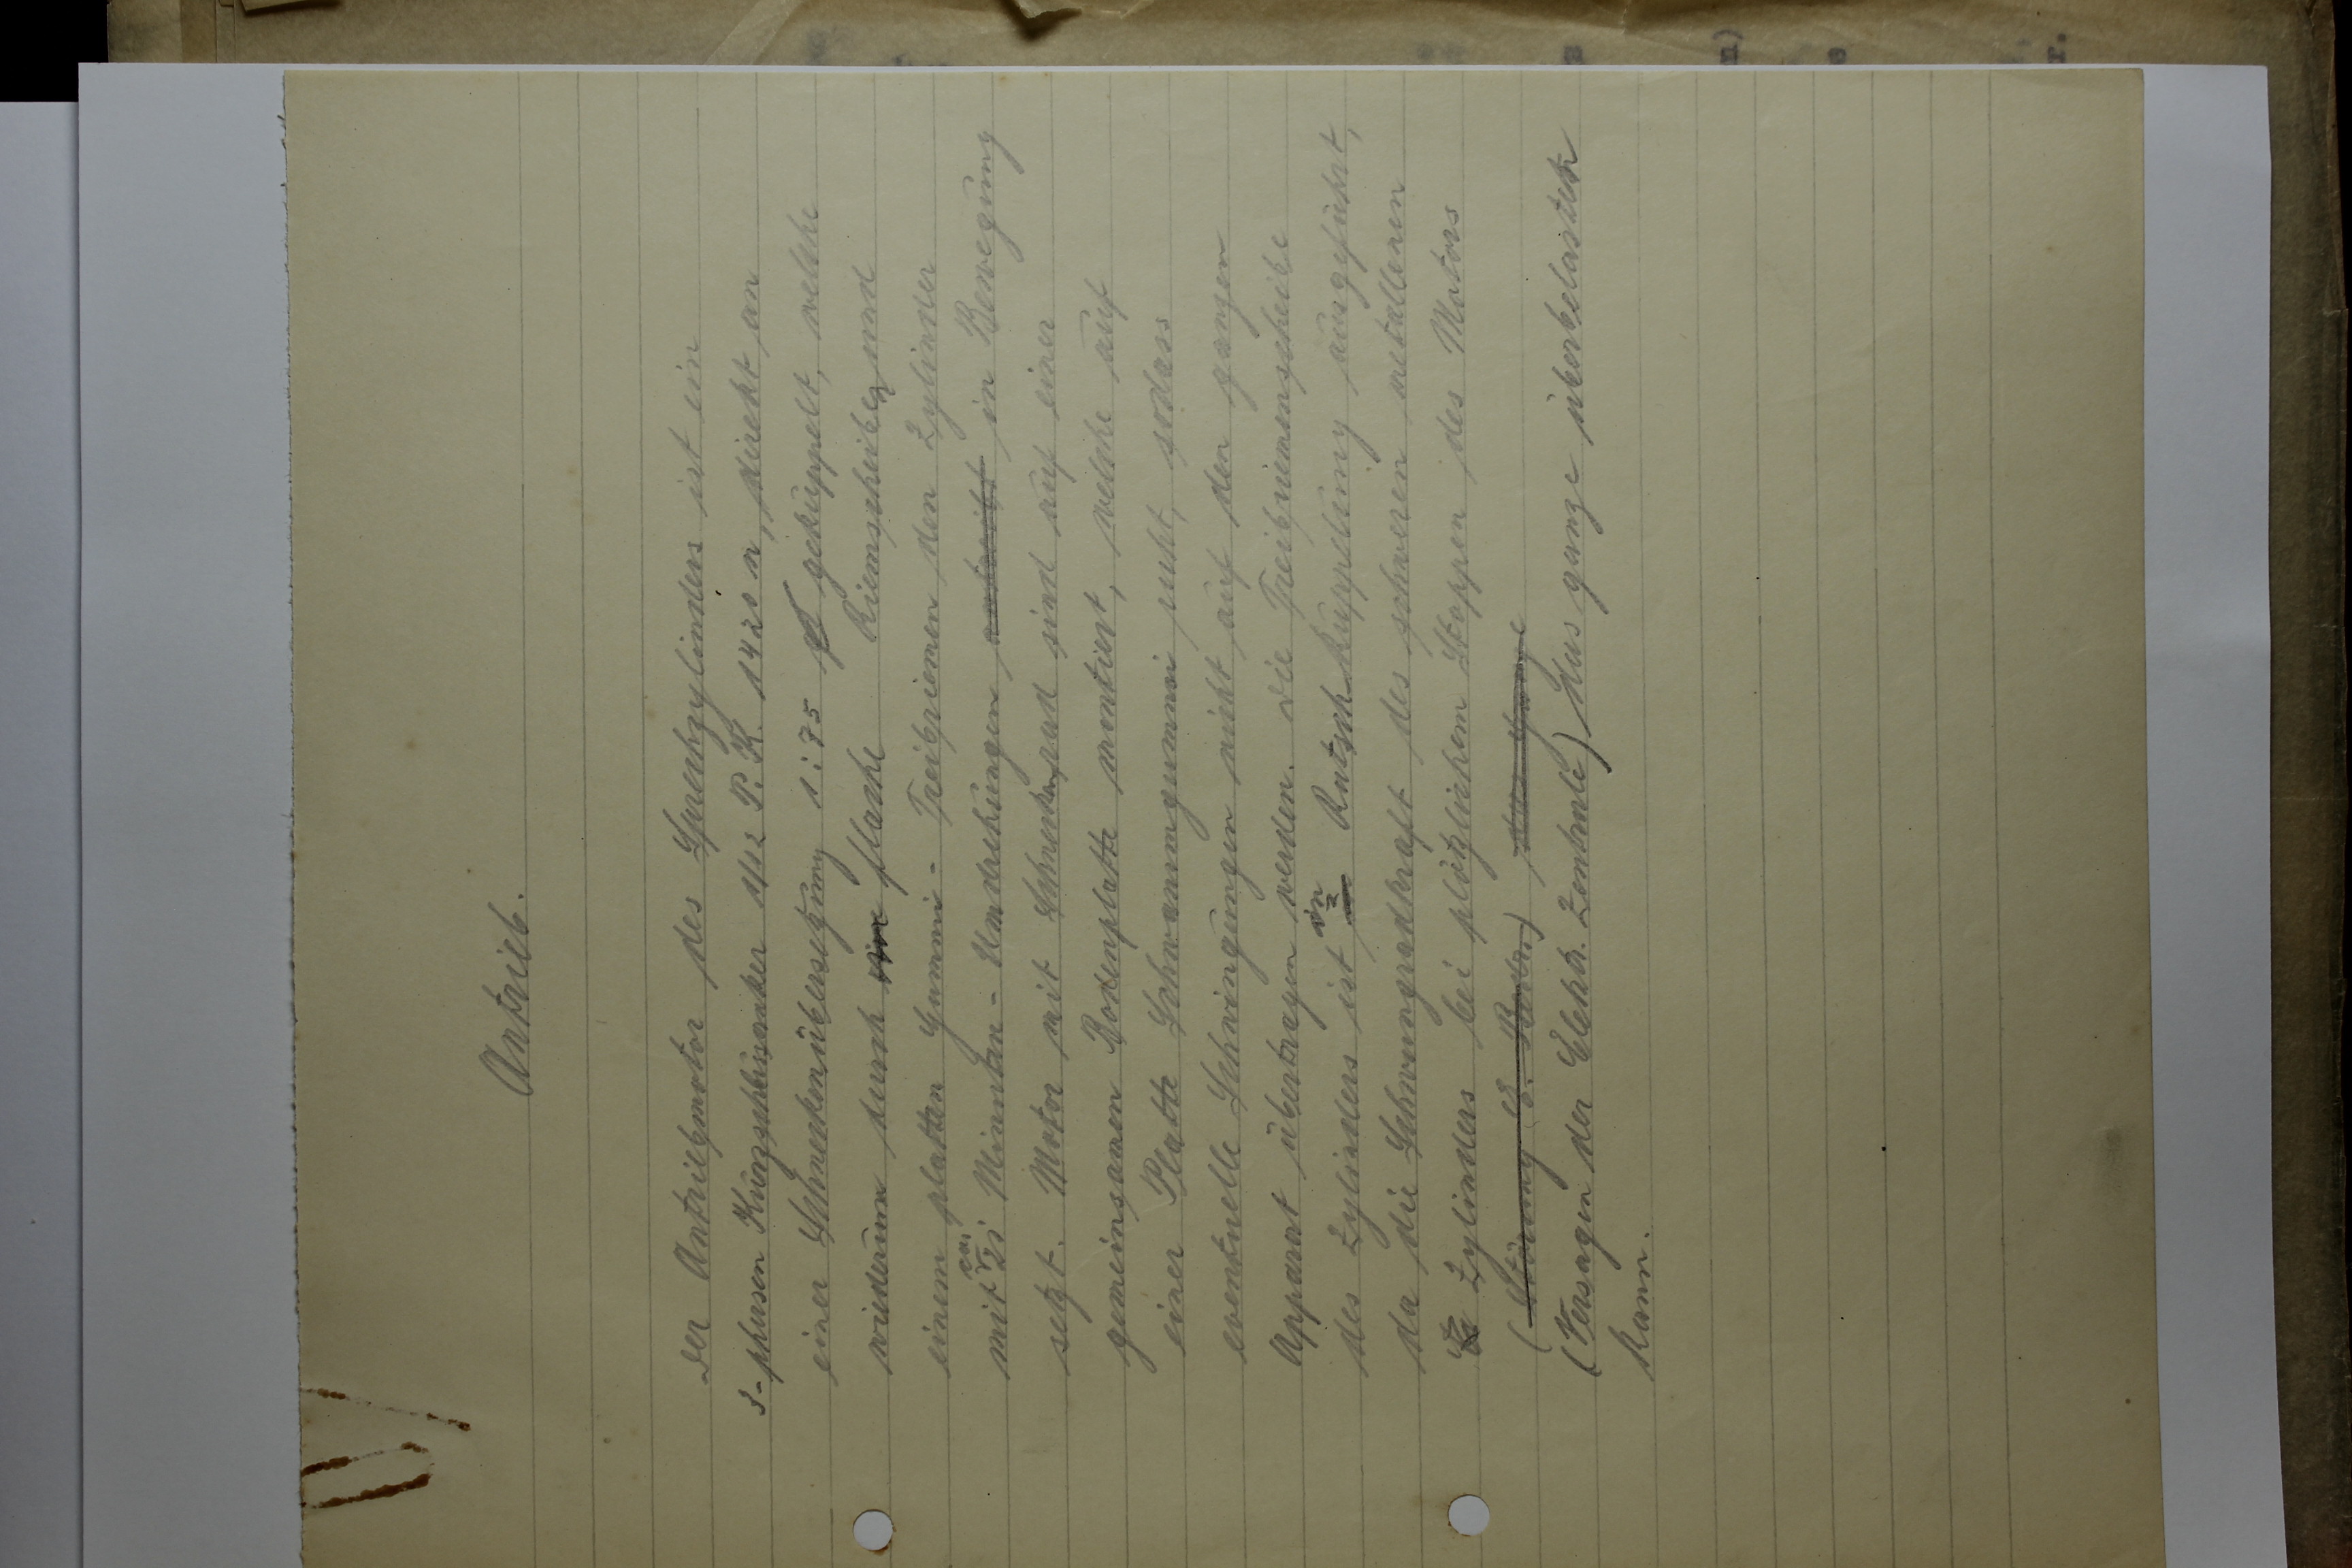 Antrieb.
Der Antriebmotor des Sprechzylinders ist ein
3-phasen Kurzschlussanker 1/12 P.K. 1420 n, direkt an
einer Schneckenübersetzung 1:75 gekuppelt, welche
wiederum durch flache Riemscheiben und
einem platten Gummi- Treibriemen den Zylinder
mit Minuten- Umdrehungen in Bewegung
setzt. Motor mit Schneckenrad sind auf einer
gemeinsamen Bodenplatte montiert, welche auf
einer Platte Schwammgummi ruht, sodass
eventuelle Schwingungen nicht auf den ganzen
Apparat übertragen werden. Die Treibriemenscheibe
des Zylinders ist in Rutschkupplung ausgeführt,
da die Schwungradkraft des schweren metallenen
Zylinders bei plötzlichem Stoppen des Motors
(Störung
(Versagen der Elektr. Zentrale) das ganze überbelasten
kann.